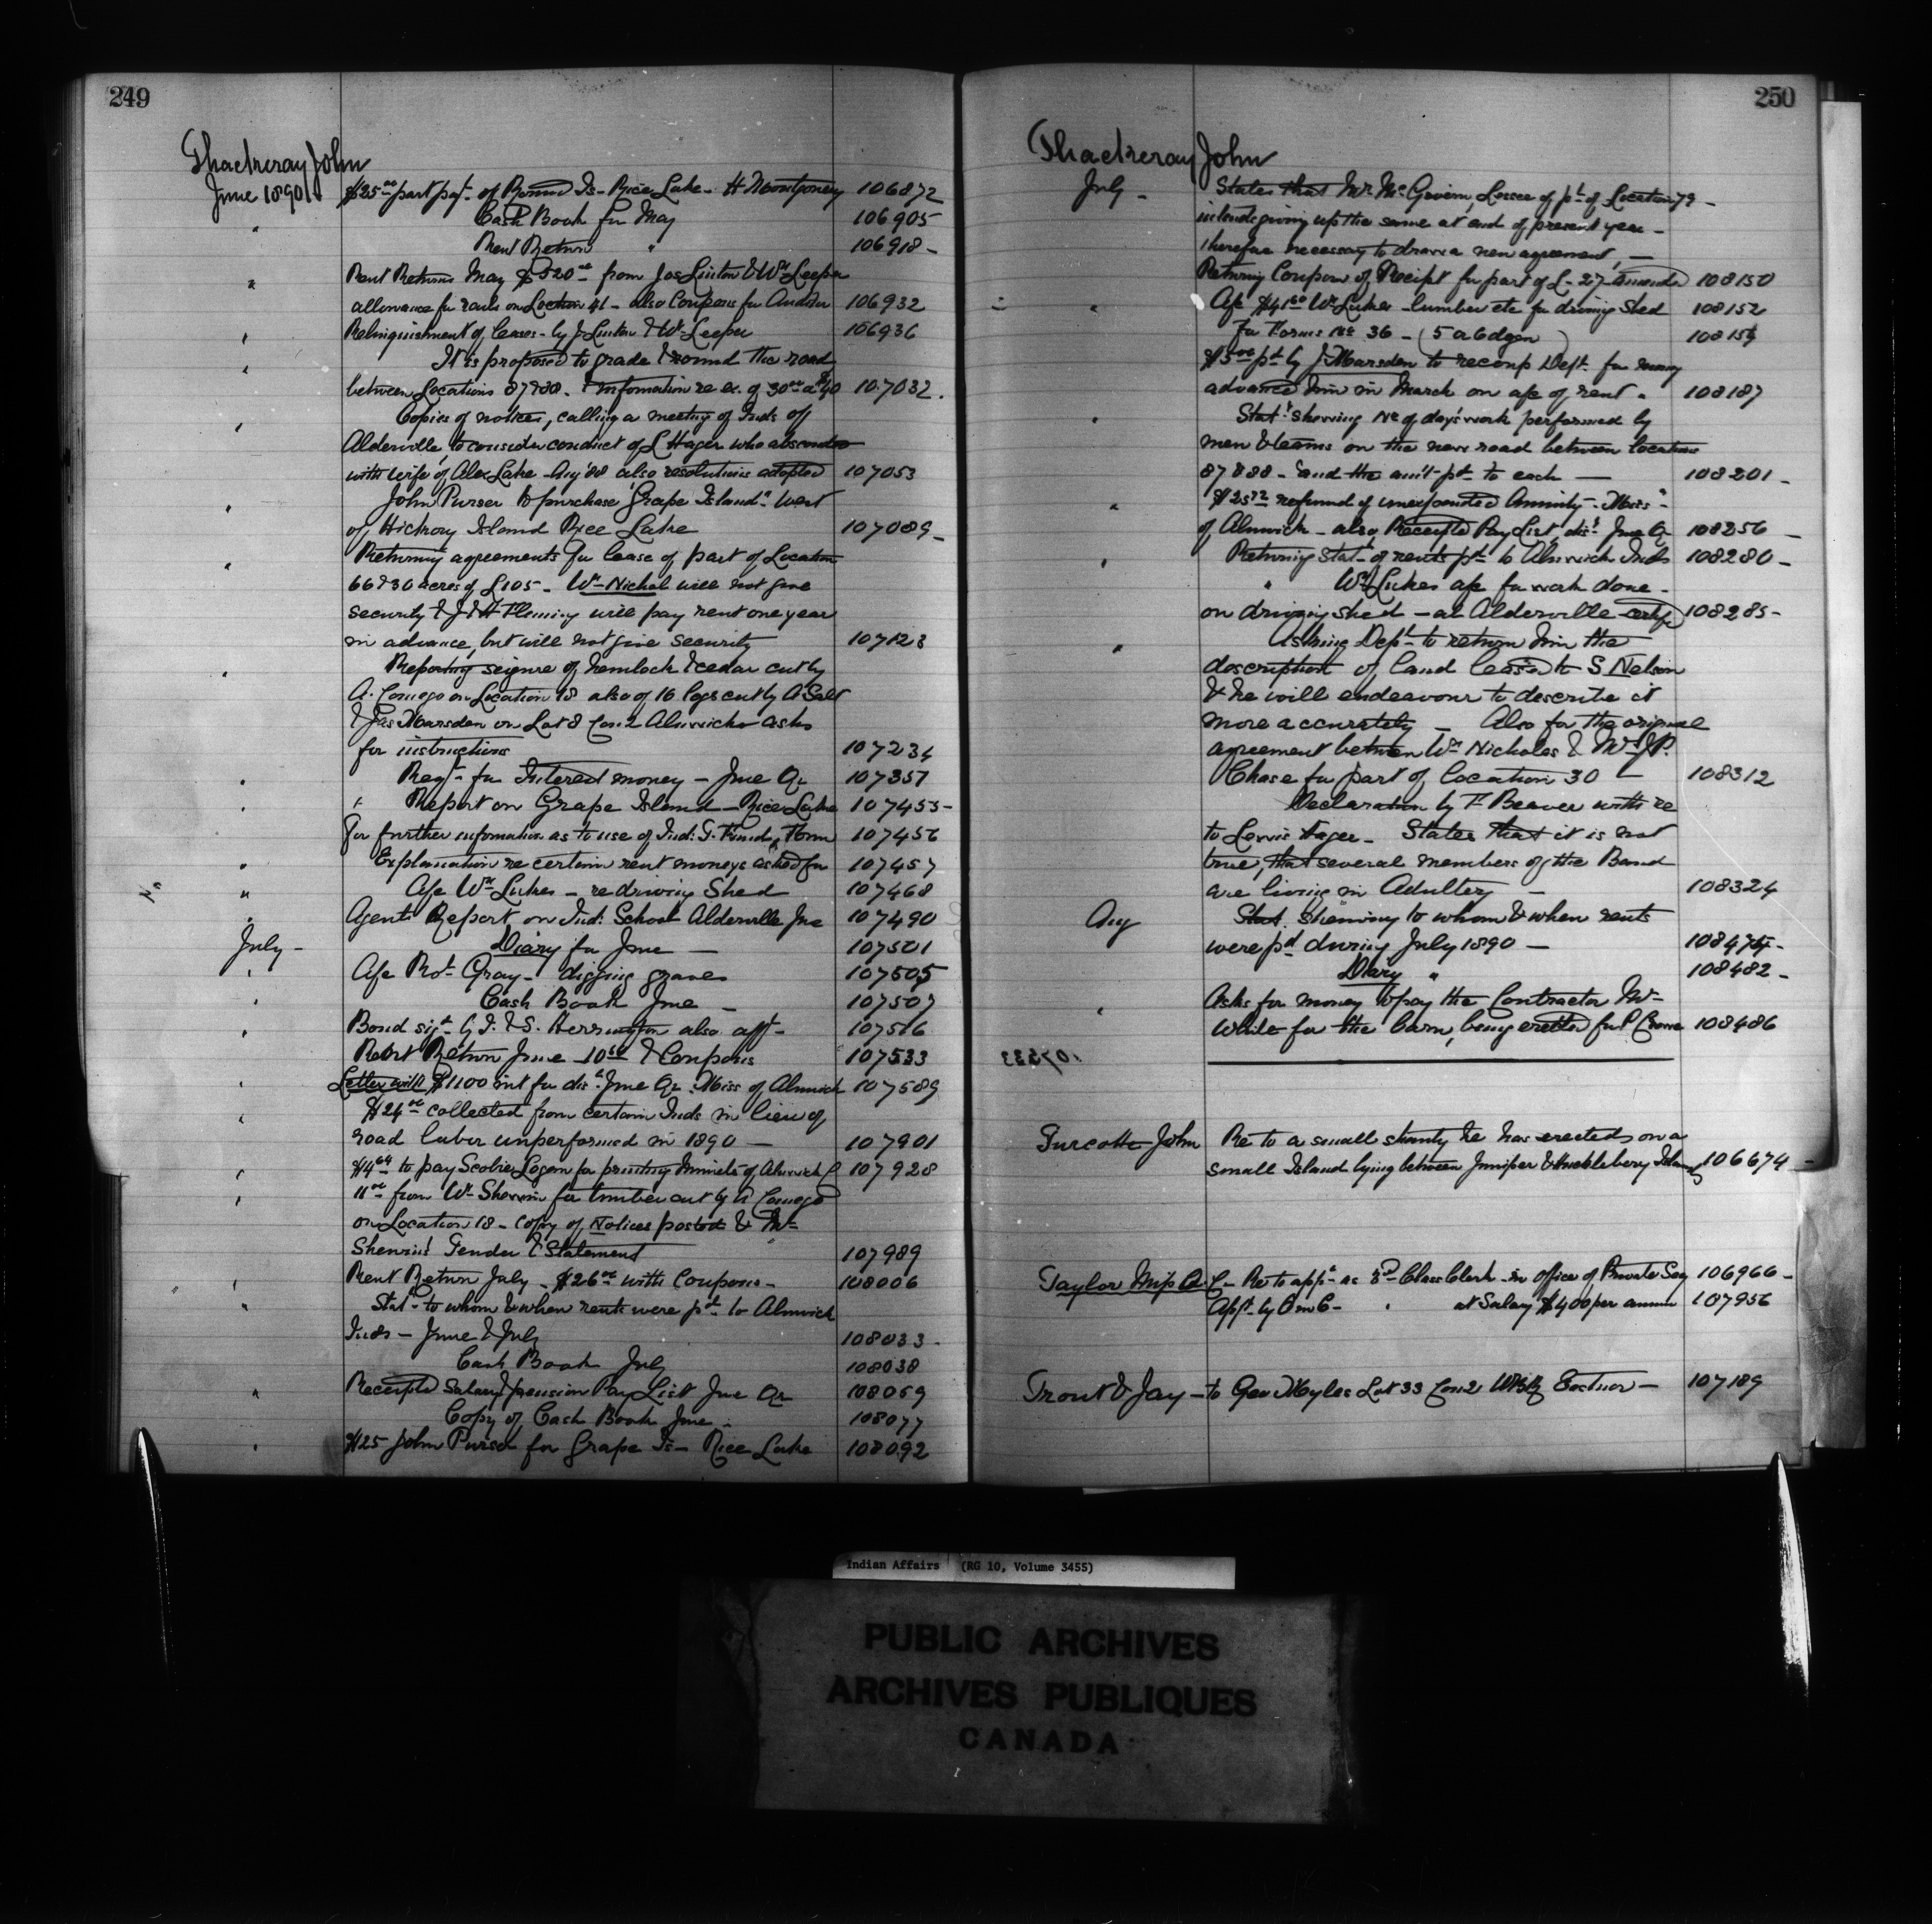 249
Thackeray John
June 1890 $25.00 part pat. of Round Is - Rice Lake - H Montgomery 106872
" Cash Book for May 106905
Rent Return " 106918 -
" Rent Returns May $520.00 from Jas Linton & Wm Leeper
allowance for rails on Location 41 - also Coupons for Auditor 106932
" Relinquishment of leases - by J Linton & Wm Leeper 106936
" It is proposed to grade & round the road
between Locations 87 & 88. & information re ex. of 30.00 a 40 107032.
" Copies of notices, calling a meeting of Inds of
Alderville, to consider conduct of L Hager who absconded
with wife of Alex Lake - Aug '88 also resolutions adopted 107053
" John Purser to purchase "Grape Island" West
of, Hickory Island Rice Lake 107089 -
" Returning agreements for lease of part of Location
66 & 30 acres of L 105 - Wm Nichol will not give
security & J & H Fleming will pay rent one year
in advance, but will not give security 107123
" Reporting seizure of hemlock & cedar cut by
A. Comego on Location 18 also of 16 logs cut by A Salt
& Jas Marsden on Lot 8 Con. 2 Alnwick asks
for instructions 107234
" Reqt - for Interest money - June Qr 107357
" " Report on Grape Island - Rice Lake 107455 -
For further information as to use of Ind: T. Funds, Form 107456
" Explanation re certain rent moneys asked for 107457
" a/c Wm Lukes - re driving Shed 107468
" Agents Report on Ind: School Alderville June 107490
July - Diary for June - 107501
" a/c Robt Gray - digging graves 107505
" Cash Book June - 107507
" Bond sigd by I. & S. Herrington also afft - 107516
Rent Return June - 10.50 & Coupons 107533
" Letter with $1100 int for dist June Qr. Miss of Alnwick 107589
" $24.00 collected from certain Inds in lieu of
road labor unperformed in 1890 - 107901
" $4.64 to pay Scobie Logan for printing Minutes of Alnwick C 107928
" 11.00 from Wm Sherwin for timber cut by A Comego
on Location 18 - Copy of Notices posted & Mr
Sherwin's Tender & Statement 107989
" Rent Return July - $26.00 with Coupons - 108006
" Statt - to whom & when rents were pd. to Alnwick
Inds - June & July 108033 -
Cash Book July 108038
" Receipted Salary & pension Pay List June Qr 108059
Copy of Cash Book June - 108077
" $25 John Purser for Grape Is - Rice Lake 108092
250
Thackeray John
July - States that Mr McGivern, Lessee of pt of Location 79 -
intends giving up the same at end of present year -
therefore necessary to draw a new agreement, -
Returning Coupon of Receipt for part of L - 27 - amended 108150
" a/c $41.60 Wm Lukes - lumber etc for driving Shed 108152
For Forms No 36 - (5 a 6 dozen) 108154
$5.00 pd by J Marsden to recoup Dept. for money
advanced him in March on a/c of rent " 108187
" Statt showing No of days' work performed by
men & teams on the new road between locations
87 & 88 - and the am't pd to each - 108201 -
" $25.72 refund of unexpended Annuity - Miss's
of Alnwick - also Receipted Pay List, dist June Qr 108256 -
" Returning Statt of rents pd to Alnwick Inds 108280 -
" Wm Lukes a/c for work done -
on driving shed - at Alderville - 108285 -
" Asking Dept to return him the
description of land leased to S Nelson
& he will endeavour to describe it
more accurately - Also for the original
agreement between Wm Nicholas & Mr J. P.
Chase for part of location 30 - 108312
Declaration by F Beaver with re
to Lewis Hager - States that it is not
true, that several members of the Band
are living in Adultery - 108324
Aug Statt. Showing to whom & when rents
were pd during July 1890 - 108474 -
Diary " 108482 -
" Asks for money to pay the Contractor Mr -
White for the barn, being erected for P Crowe 108486
Turcotte John Re to a small shanty he has erected on a
small Island lying between Juniper & Huckleberry Islands 106674 -
Taylor Miss A. C - Re to appt - as 3rd Class Clerk - in office of Private Secy 106966 -
Appt - by O in C - " at Salary $400 per annum 107956
Trout & Jay - to Geo Myles Lot 33 Con 2 Eastnor - 107189
Indian Affairs (RG 10, Volume 3455)
PUBLIC ARCHIVES
ARCHIVES PUBLIQUES
CANADA